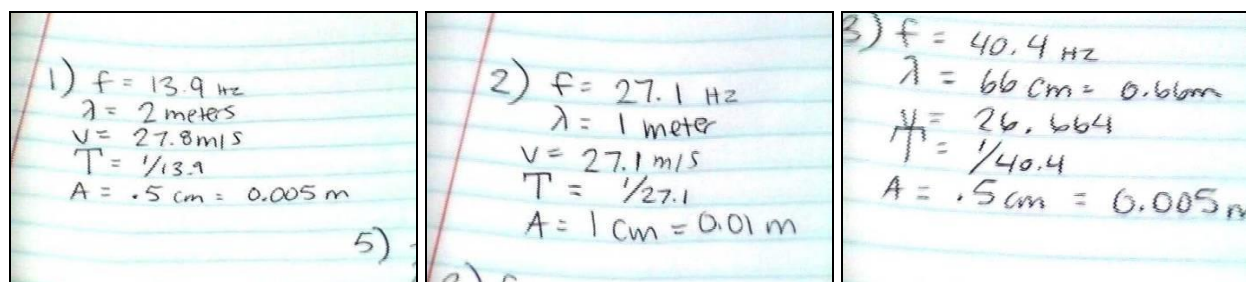 1) f = 13.9 Hz
λ = 2 meters
v = 27.8 m/s
T = 1/13.9
A = .5 cm = 0.005 m
5)
2) f = 27.1 Hz
λ = 1 meter
v = 27.1 m/s
T = 1/27.1
A = 1 cm = 0.01 m
3) f = 40.4 Hz
λ = 66 cm = 0.66m
v = 26.664
T = 1/40.4
A = .5 cm = 0.005 m